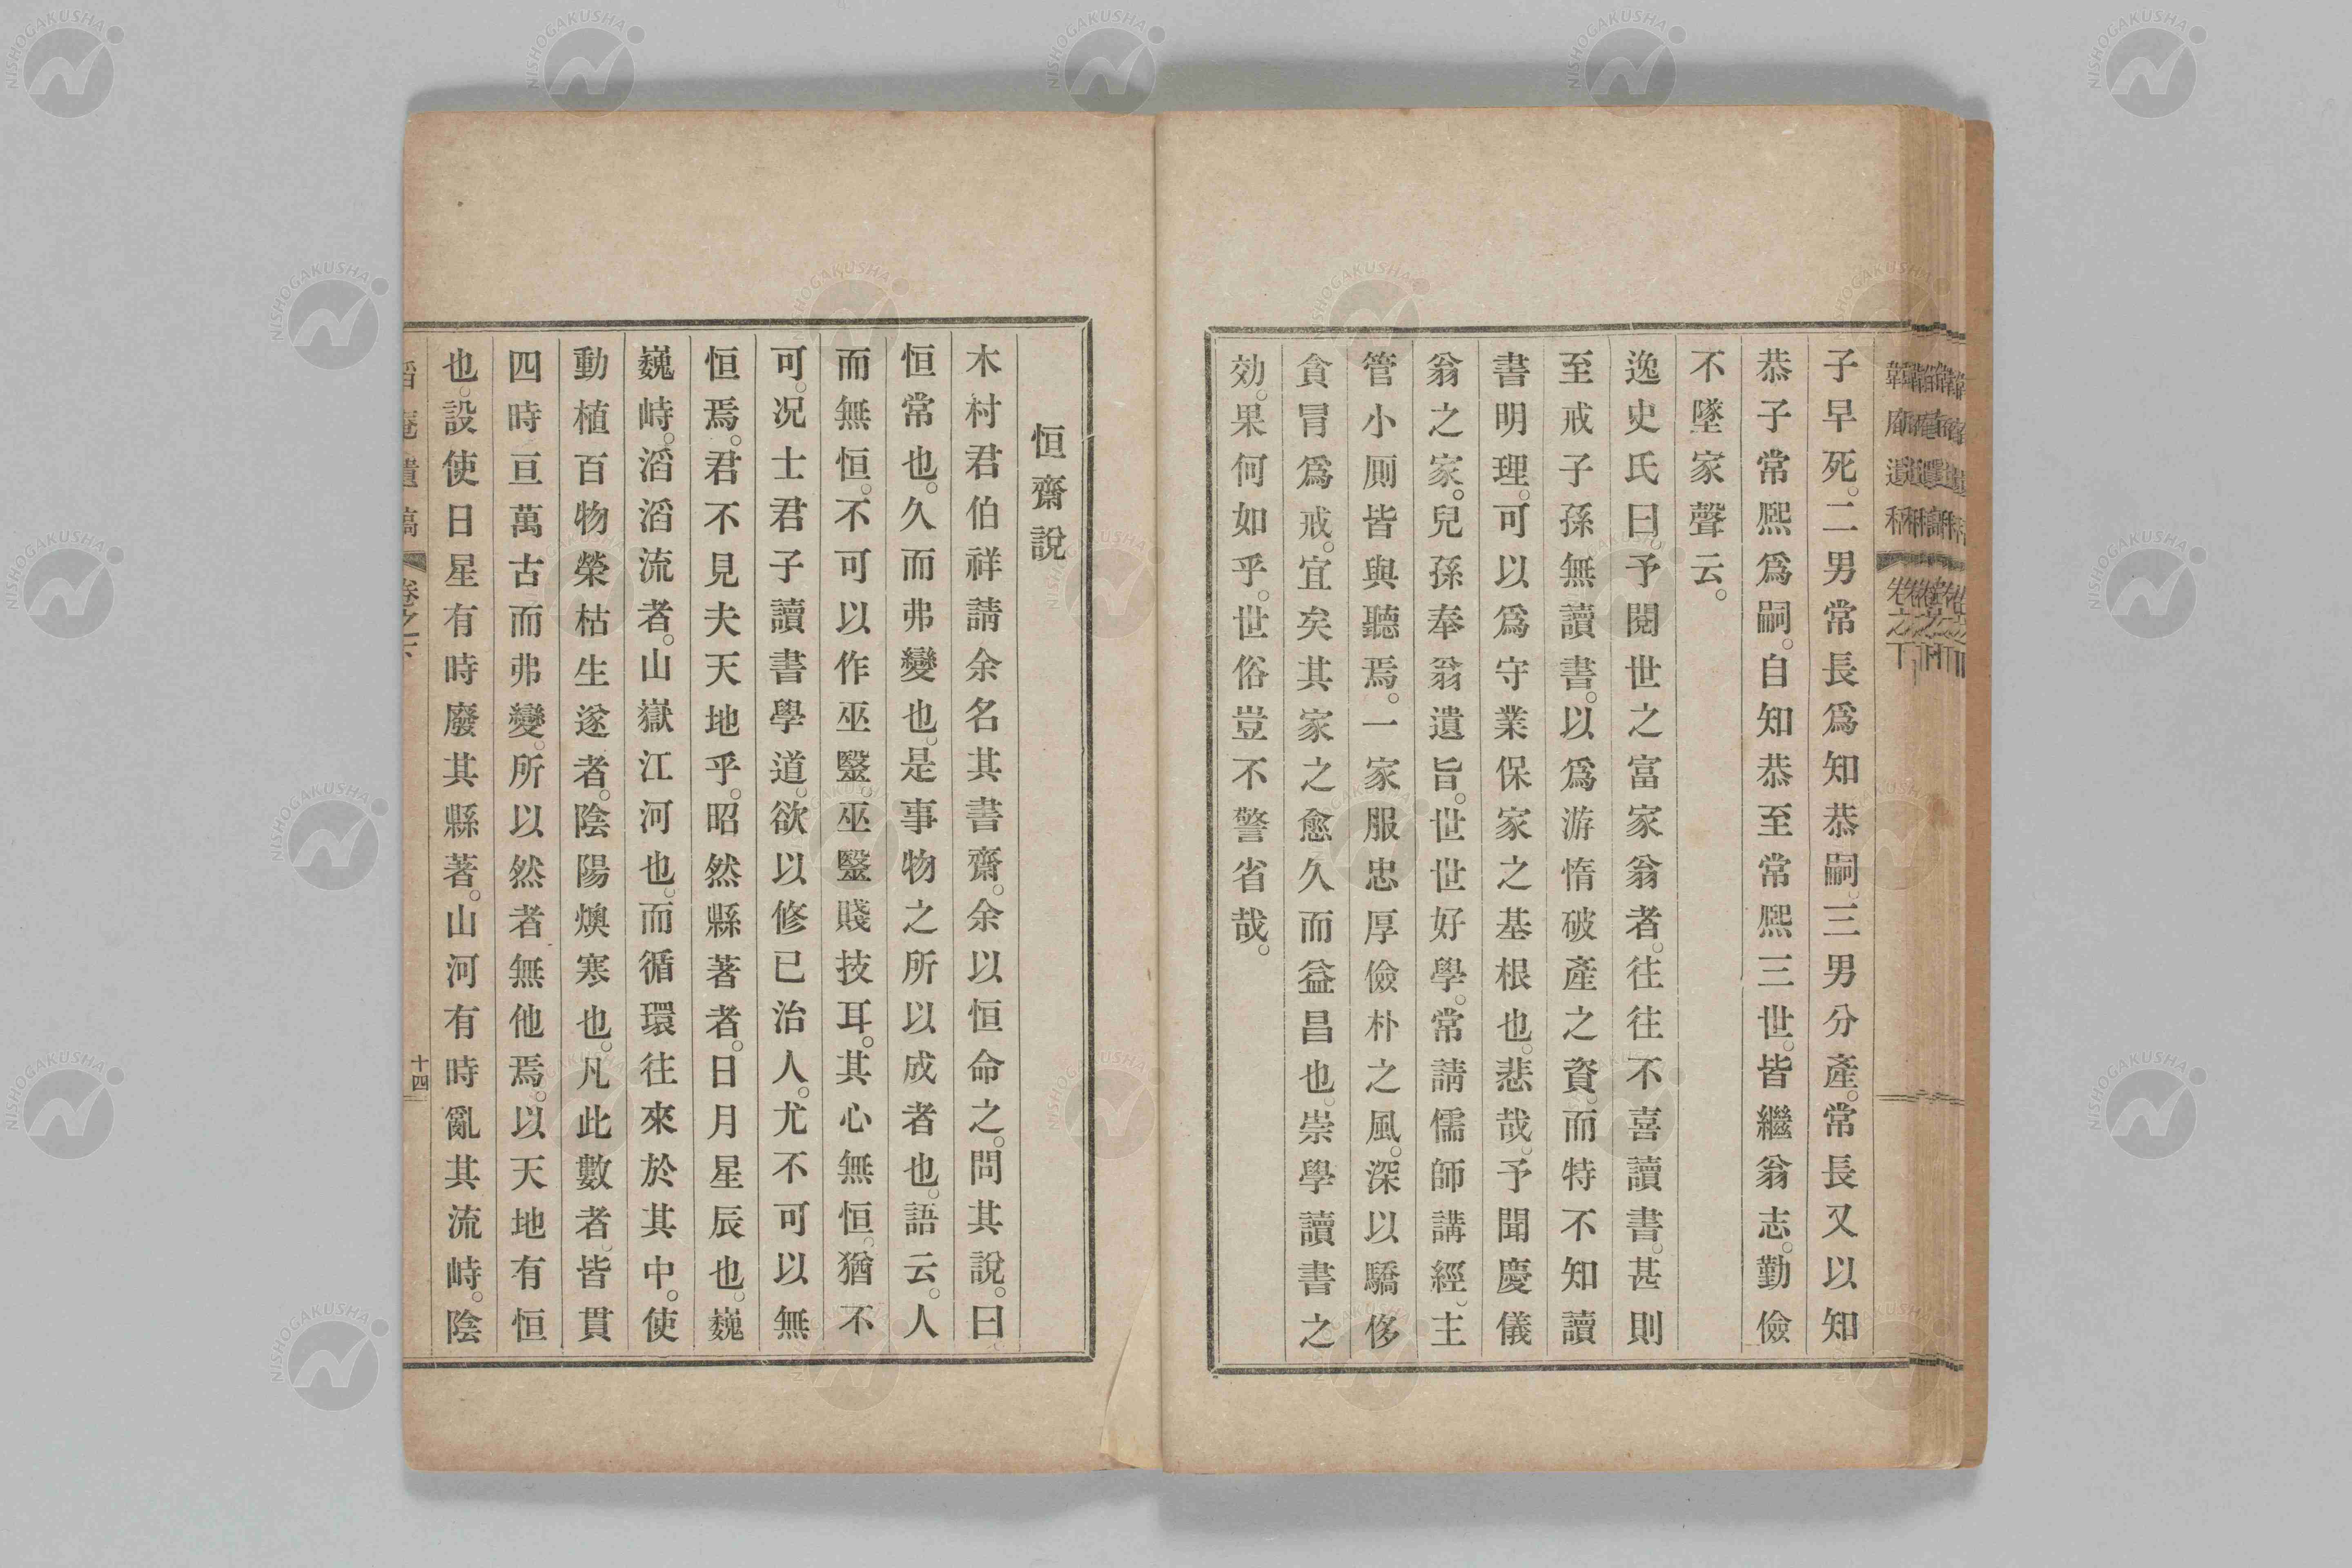 子早死。二男常長爲知恭嗣。三男分產。常長又以知
恭子常熈爲嗣。自知恭至常熈三世。皆繼翁志。勤儉
不墜家聲云。
逸史氏曰予閱世之富家翁者。往往不喜讀書。甚則
至戒子孫無讀書。以爲游惰破產之資。而特不知讀
書明理。可以爲守業保家之基根也。悲哉。予聞慶儀
翁之家。兒孫奉翁遺旨。世世好學。常請儒師講經。主
管小厠皆與聽焉。一家服忠厚儉朴之風。深以驕侈
貪冒爲戒。宜矣其家之愈久而益昌也。崇學讀書之
効。果何如乎。世俗豈不警省哉。
恒齋說
木村君伯祥請余名其書齋。余以恒命之。問其說。曰
恒常也。久而弗變也。是事物之所以成者也。語云。人
而無恒。不可以作巫毉。巫毉賤技耳。其心無恒。猶不
可。况士君子讀書學道。欲以修已治人。尤不可以無
恒焉。君不見夫天地乎。昭然縣著者。日月星辰也。巍
巍峙。滔滔流者。山嶽江河也。而循環往來於其中。使
動植百物榮枯生遂者。陰陽燠寒也。凡此數者。皆貫
四時亘萬古而弗變。所以然者無他焉。以天地有恒
也。設使日星有時廢其縣著。山河有時亂其流峙。陰
卷之下
十四
NISHOGAKUSHA